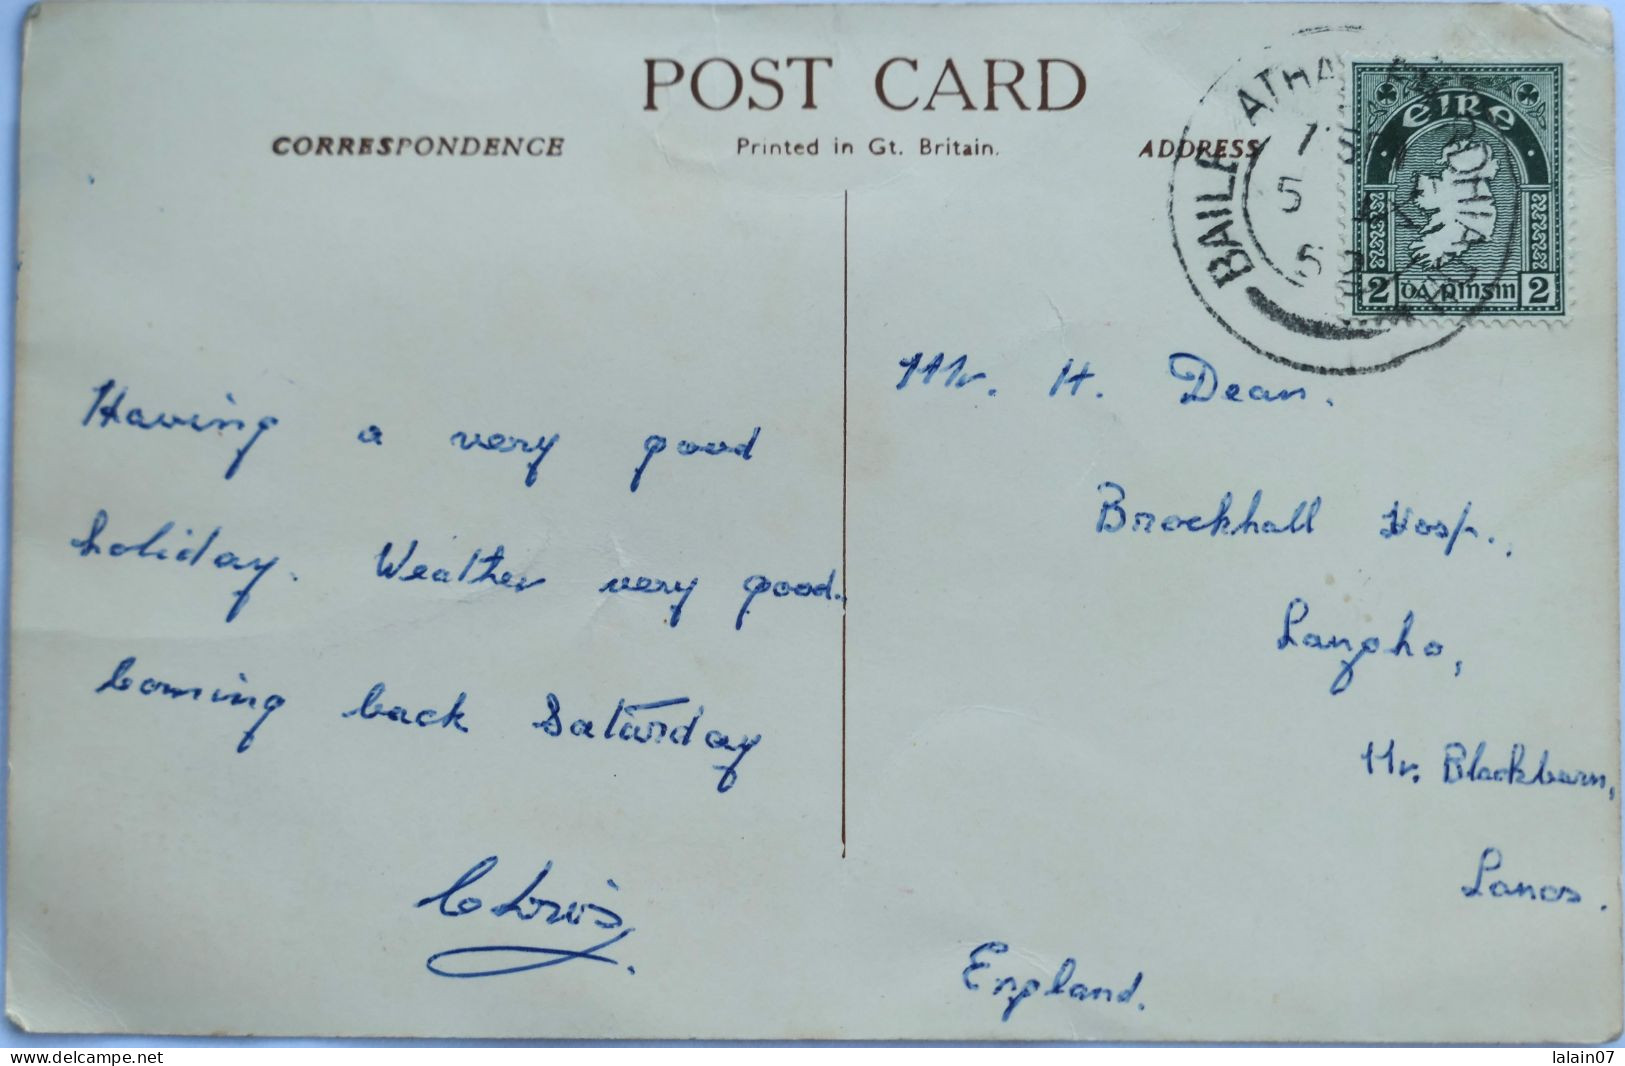 POST CARD
CORRESPONDENCE
Printed in Gt. Britain.
ADDRESS
BAILE ATHA
5
éire
2 dá pinsin 2
Having a very good
holiday. Weather very good.
Coming back Saturday
Mr. H. Dean.
Brockhall Hosp.,
Langho,
Nr. Blackburn,
Lancs.
England.
www.delcampe.net
lalain07